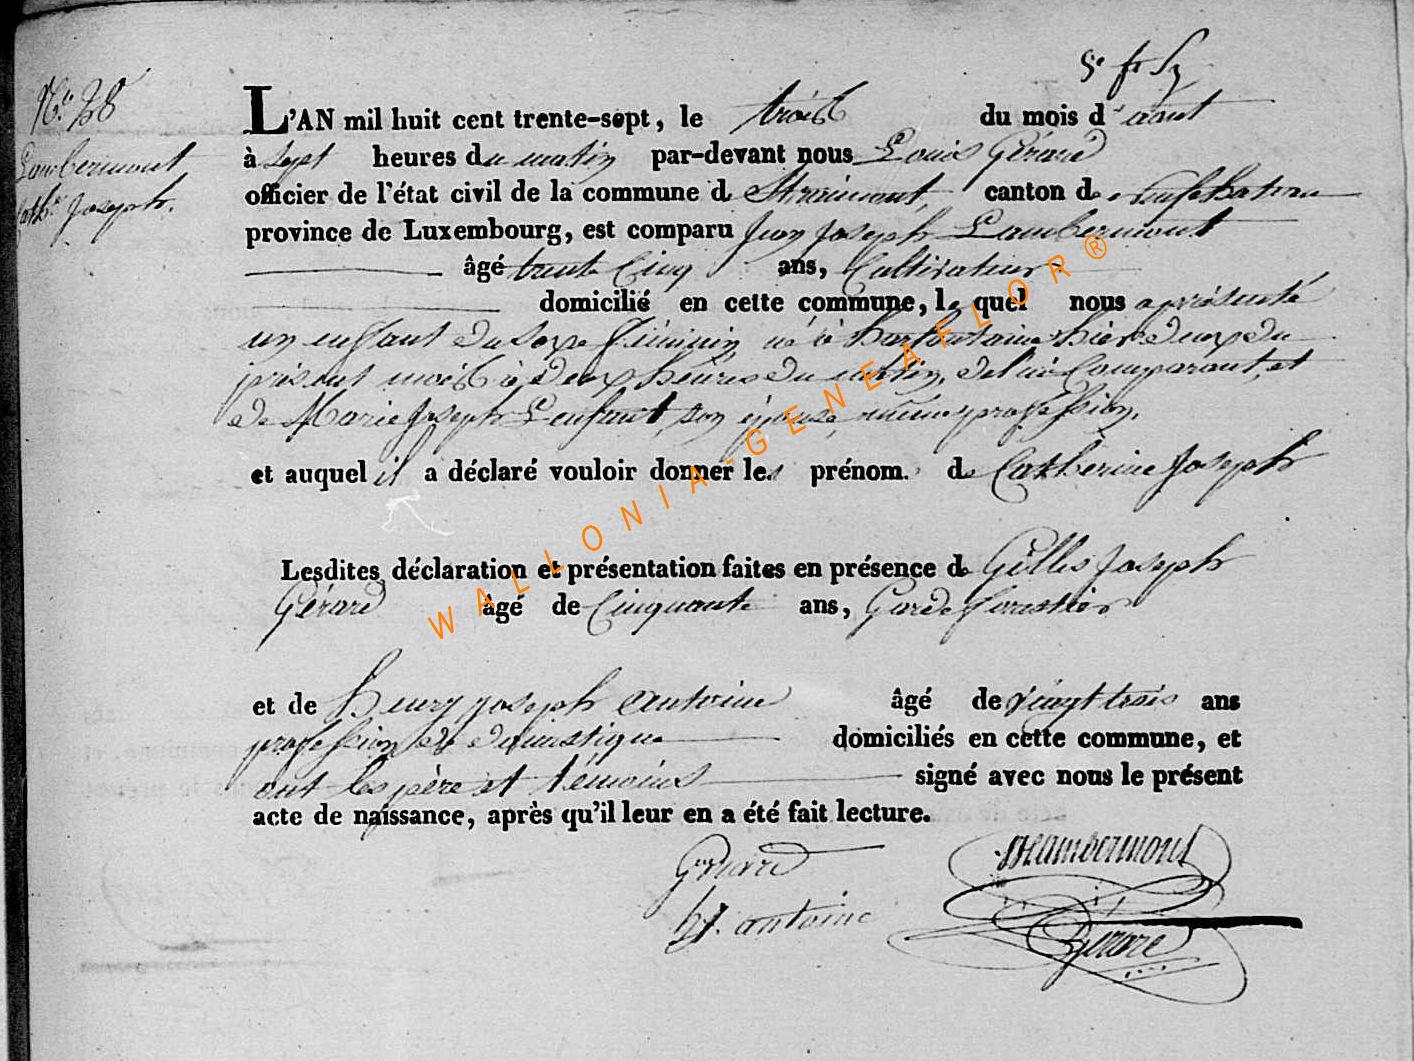 5e ft
N° 28
Lambermont
Cathe Joseph.
L'AN mil huit cent trente-sept, le trois du mois d'août
à sept heures du matin par-devant nous Louis Gérard
officier de l'état civil de la commune de Straimont, canton de neufchateau
province de Luxembourg, est comparu Jean Joseph Lambermont
âgé trente Cinq ans, Cultivateur
domicilié en cette commune, le quel nous a présenté
un enfant du sexe féminin, né à harfontaine hier deux du
présent mois à deux heures du matin, de lui Comparant, et
de Marie Joseph Lenfant, son épouse, même profession,
et auquel il a déclaré vouloir donner les prénom. de Catherine Joseph
Lesdites déclaration et présentation faites en présence de Gilles Joseph
Gérard âgé de Cinquante ans, Garde forestier
et de henry joseph antoine âgé de vingt trois ans
profession de domestique domiciliés en cette commune, et
ont les père et témoins signé avec nous le présent
acte de naissance, après qu'il leur en a été fait lecture.
Gérard
Lambermont
H. antoine
Gérard
WALLONIA-GENEAFLOR®